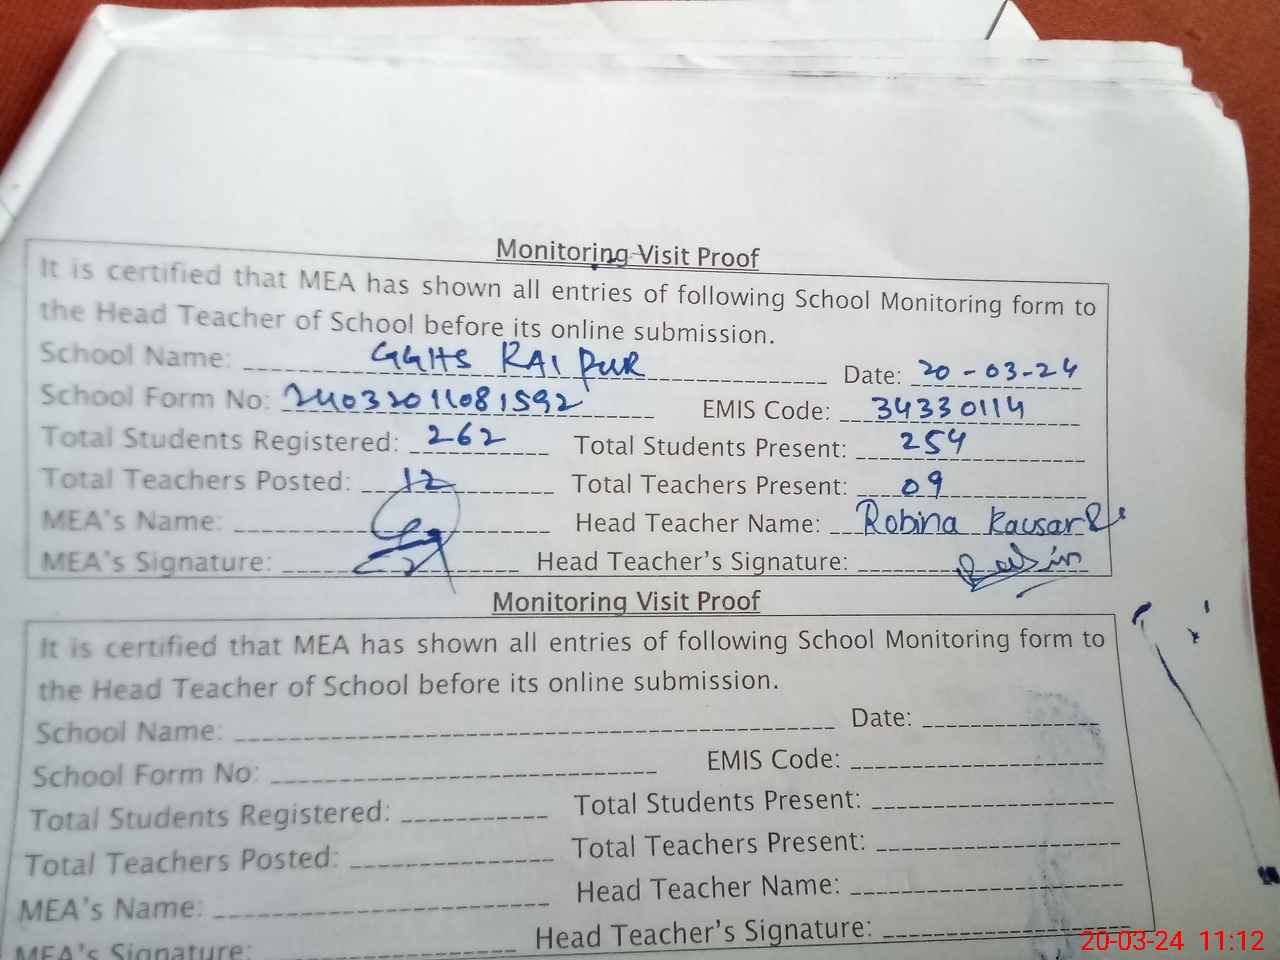 Monitoring Visit Proof
It is certified that MEA has shown all entries of following School Monitoring form to
the Head Teacher of School before its online submission.
School Name: GGHS RAIPUR Date: 20-03-24
School Form No: 24032011081592 EMIS Code: 34330114
Total Students Registered: 262 Total Students Present: 254
Total Teachers Posted: 12 Total Teachers Present: 09
MEA's Name: Head Teacher Name: Robina Kausar
MEA's Signature: Head Teacher's Signature:
Monitoring Visit Proof
It is certified that MEA has shown all entries of following School Monitoring form to
the Head Teacher of School before its online submission.
School Name: Date:
School Form No: EMIS Code:
Total Students Registered: Total Students Present:
Total Teachers Posted: Total Teachers Present:
MEA's Name: Head Teacher Name:
MEA's Signature: Head Teacher's Signature:
20-03-24 11:12